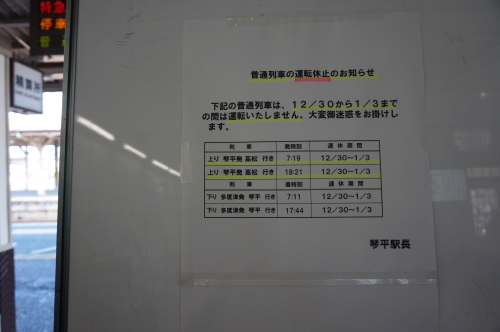 特急
停車
普
精算所
普通列車の運転休止のお知らせ
下記の普通列車は、12/30から1/3まで
の間は運転いたしません。大変御迷惑をお掛けし
ます。
列車 発時刻 運休期間
上り 琴平発 高松 行き 7:19 12/30~1/3
上り 琴平発 高松 行き 18:21 12/30~1/3
列車 着時刻 運休期間
下り 多度津発 琴平 行き 7:11 12/30~1/3
下り 多度津発 琴平 行き 17:44 12/30~1/3
琴平駅長